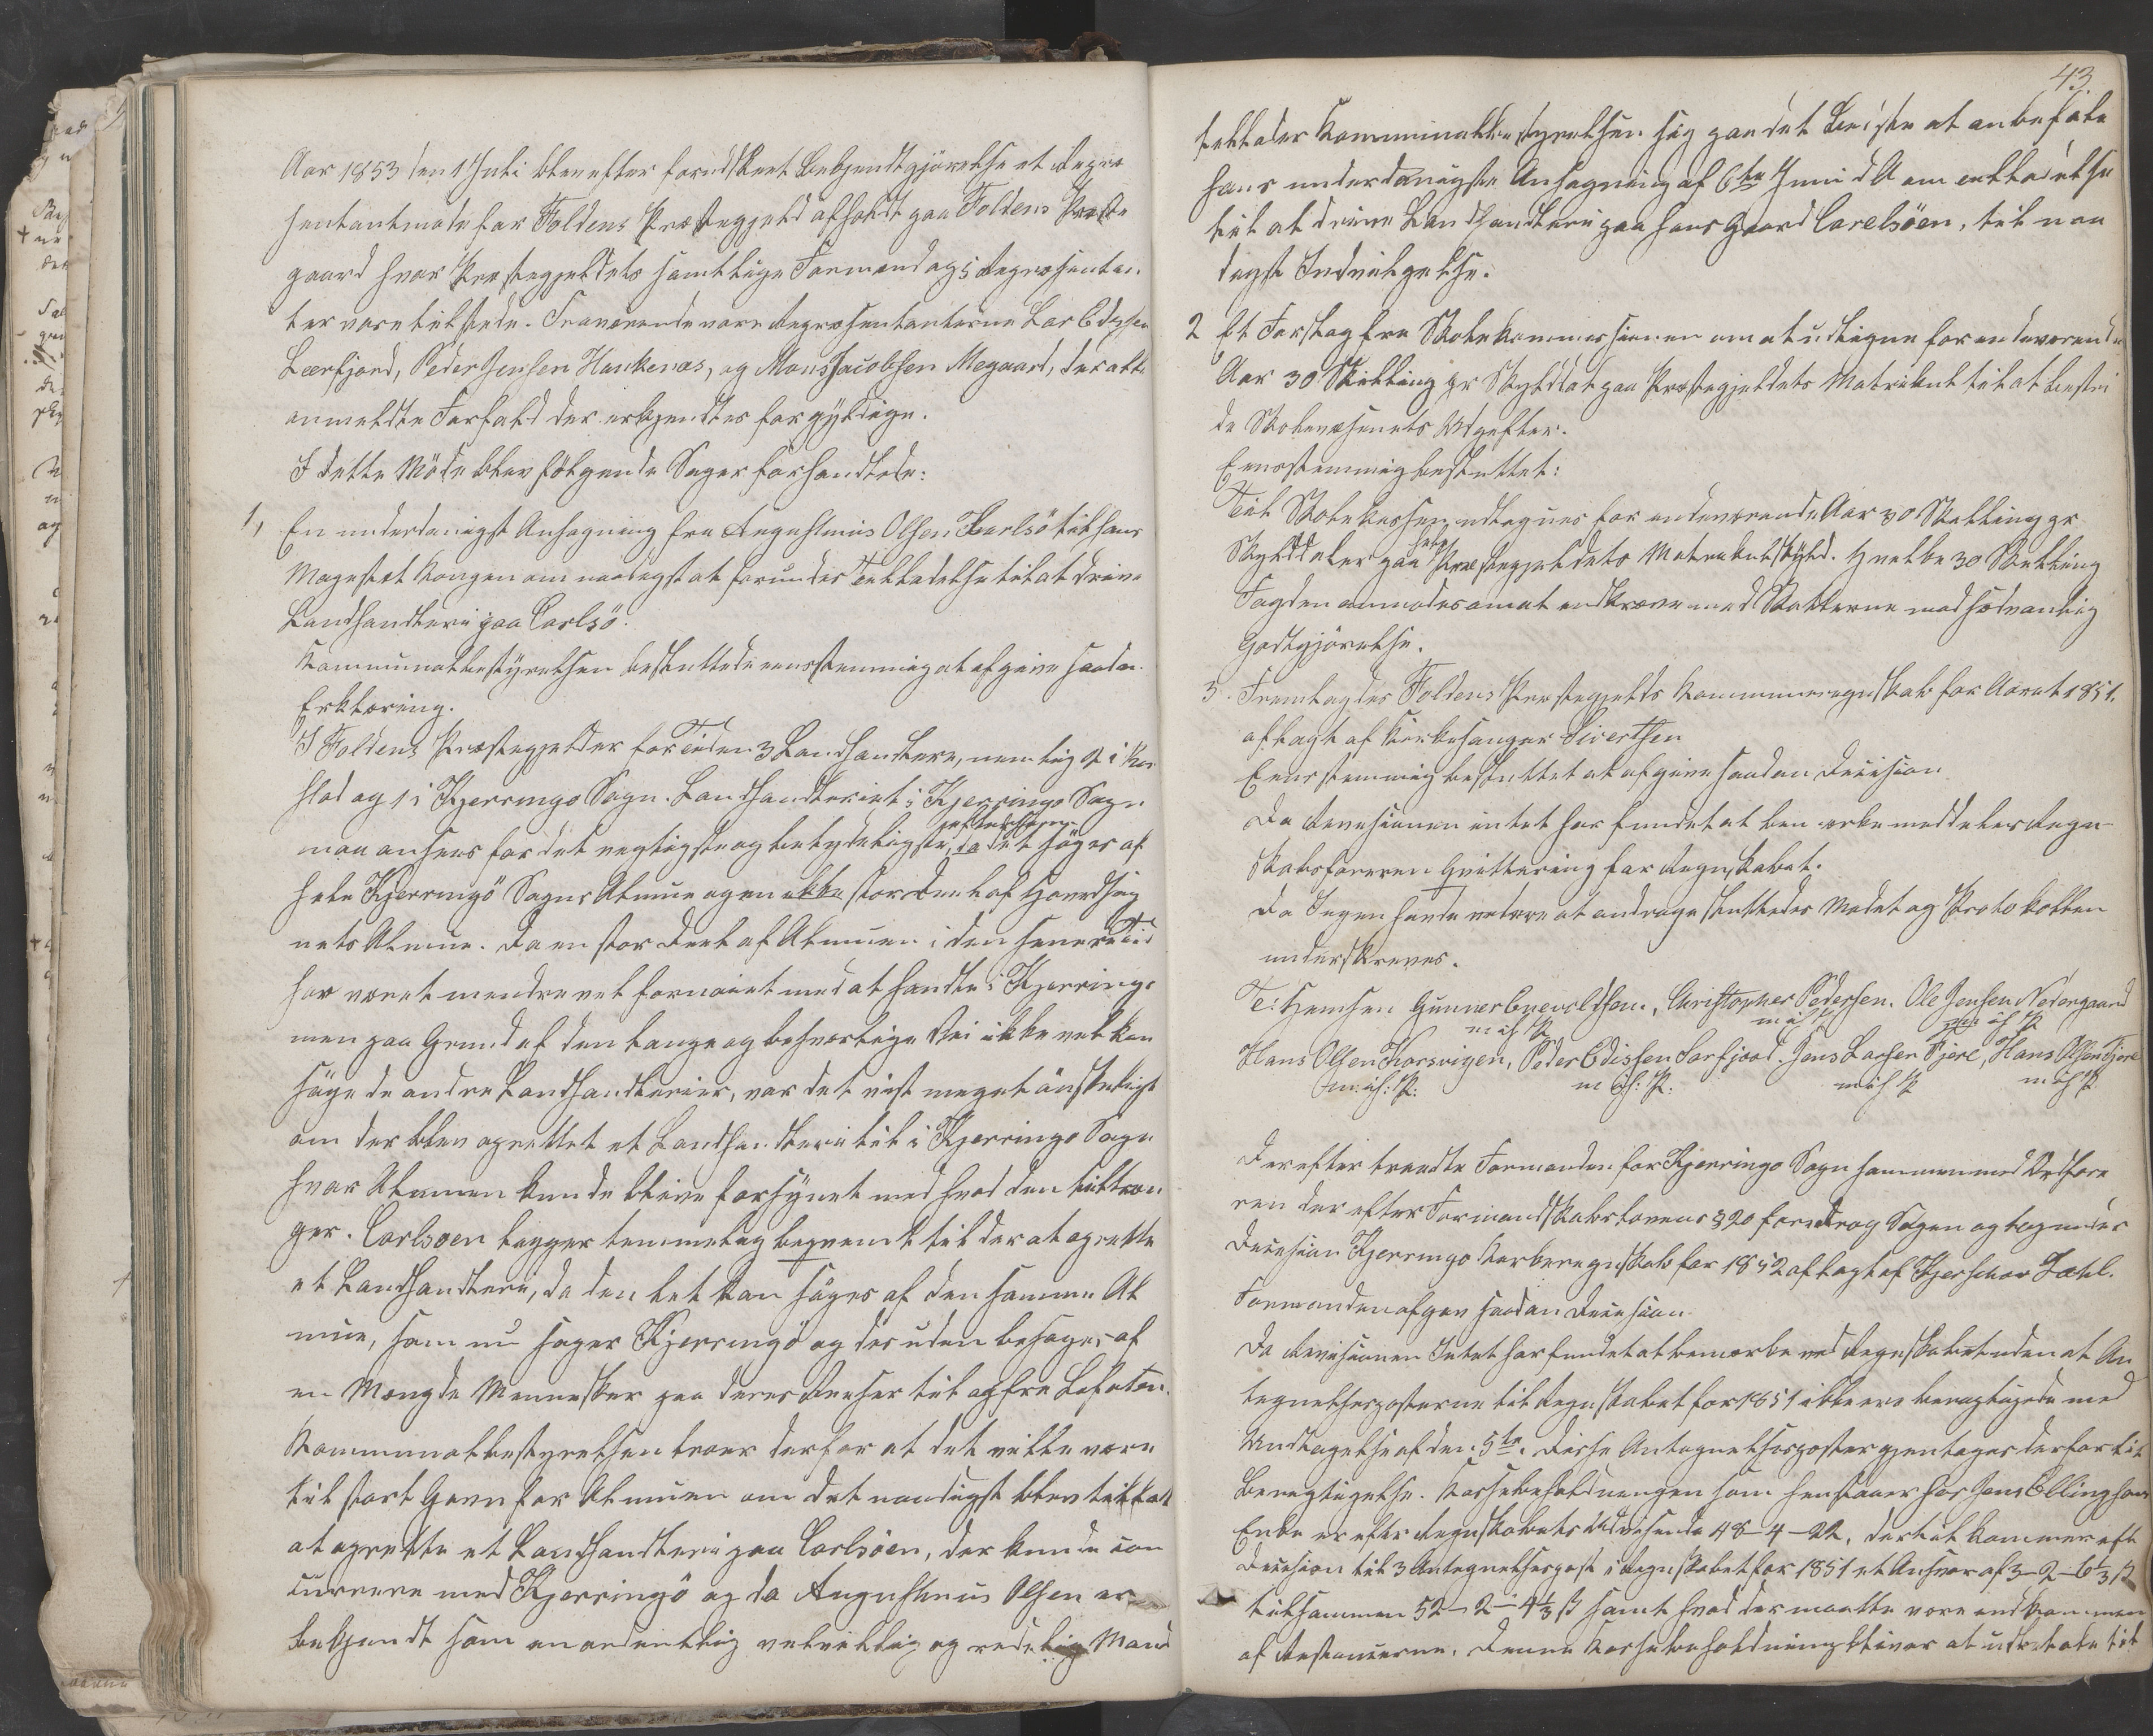 Aar 1853 den 1 Juli blev efter forudskeet Bekjendtgjörelse et Repræ
sentantmøde for Foldens Præstegjeld afholdt paa Foldens Præste
gaard hvor Præstegjeldets samtlige Formænd og 5 Repræsentan
ter vare tilstede. Fraværende vare Repræsentanterne Lars Edisen
Leerfjord, Peder Jensen Husbenæs, og Mons Jacobsen Megaard, der alle
anmeldte Forfald der erkjendtes for gyldige.
I dette Möde blev fölgende Sager forhandlede:
1, En underdanigst Ansøgning fra Augustinus Olsen Karlsö til hans
Majestæt Kongen om naadigst at forundes Tilladelse til at drive
Landhandleri paa Carlsö.
Kommunalbestÿrelsen besluttede eensstemmig at afgive saadan
Erklæring.
I Foldens Præstegjeld er for Tiden 3 Landhandlere, nemlig 2 i Ho
slad og 1 i Kjerringø Sogn. Landhandleriet i Kjerringø Sogn
maa ansees for det vigtigste og betydeligste, da det söges af
hele Kjerringö Sogns Almue og en ikke stor Deel af Hovedsog
nets Almue. Da en stor Deel af Almuen i den senere Tid
har været mindre vel fornøiet med at handle i Kjerringø
men paa Grund af den lange og besværlige Vei ikke vel kan
söge de andre Landhandlerier, var det vist meget önskeligt
om der blev oprettet et Landhandleri til i Kjerringø Sogn
hvor Almuen kunde blive forsÿnet med hvad den tiltræn
ger. Carlsøen ligger temmelig beqvemt til der at oprette
et Landhandleri, da den let kan söges af den samme Al
mue, som nu søger Kjerringö og des uden besøges af
en Mængde Mennesker paa deres Reiser til og fra Lofoten.
Kommunalbestyrelsen troer derfor at det vilde være
til stort Gavn for Almuen om det naadigst blev tilladt
at oprette et Landhandleri paa Carlsöen, der kunde con
currere med Kjerringö og da Augustinus Olsen er
bekjendt som en ordentlig velvillig og redelig Mand
43.
tillader Kommunalbestyrelsen sig paa det Bedste at anbefale
hans underdanigste Ansøgning af 6te Juni d A om Tilladelse
til at drive Landhandleri paa hans Gaard Carelsöen, til naa
digst Indvilgelse.
2 Et Forslag fra Skolekommissionen om at udligne for indeværende
Aar 30 Skilling pr Skylddaler paa Præstegjeldets Matrikul til at bestri
de Skolevæsenets Udgifter.
Eensstemmig besluttet:
Til Skolekassen udlignes for indeværende Aar 30 Skilling pr
Skylddaler paa hele Præstegjeldets Matrikulskyld. Hvilke 30 Skilling
Fogden anmodes om at indkræve med Skatterne mod sædvanlig
Godtgjörelse.
3. Fremlagdes Foldens Præstegjelds Kommuneregnskab for Aaret 1851.
aflagt af Kirkesanger Sivertsen
Eensstemmig besluttet at afgive saadan Decision
Da Revisionen intet har fundet at bemærke meddeles Regn-
skabsføreren Qvittering for Regnskabet.
Da Ingen havde videre at andrage sluttedes Mødet og Protokollen
underskreves.
Te: Hemsen Gunner Enevoldsen, Christopher Pedersen. Ole Jensen Nedergaard
m i h P m i h P m i h P
Hans Olsen Korsvigen, Peder Edissen Lerfjord. Jens Larsen Fjære, Hans Olsen Fjære
m. i h: P: m i h: P: m i h P m i h P
Derefter traadte Formanden for Kjerringø Sogn sammen med Ordføre
ren der efter Formandskabslovens § 20 foredrog Sagen og tog under
Decision Kjerringø Kirkeregnskab for 1852 aflagt af Kirkeværger Zahl.
Formanden afgav saadan Decision
Da Revisionen Intet har fundet at bemærke ved Regnskabet uden at An
tegnelsesposterne til Regnskabet for 1851 ikke ere berigtigede med
Undtagelse af den 5te. Disse Antegnelsesposter gjentages derfor til
Berigtigelse. Kassebeholdningen som henstaaer hos Jens Ellingsens
Enke er efter Regnskabets Udvisende 48-4-22, dertil kommer efter
Decision til 3 Antegnelsespost i Regnskabet for 1851 et Ansvar af 3-2-6 1/3 ß
tilsammen 52-2-4 1/3 ß samt hvad der maatte være indkommen
af Restancerne. Denne Kassebeholdning bliver at udbetale til